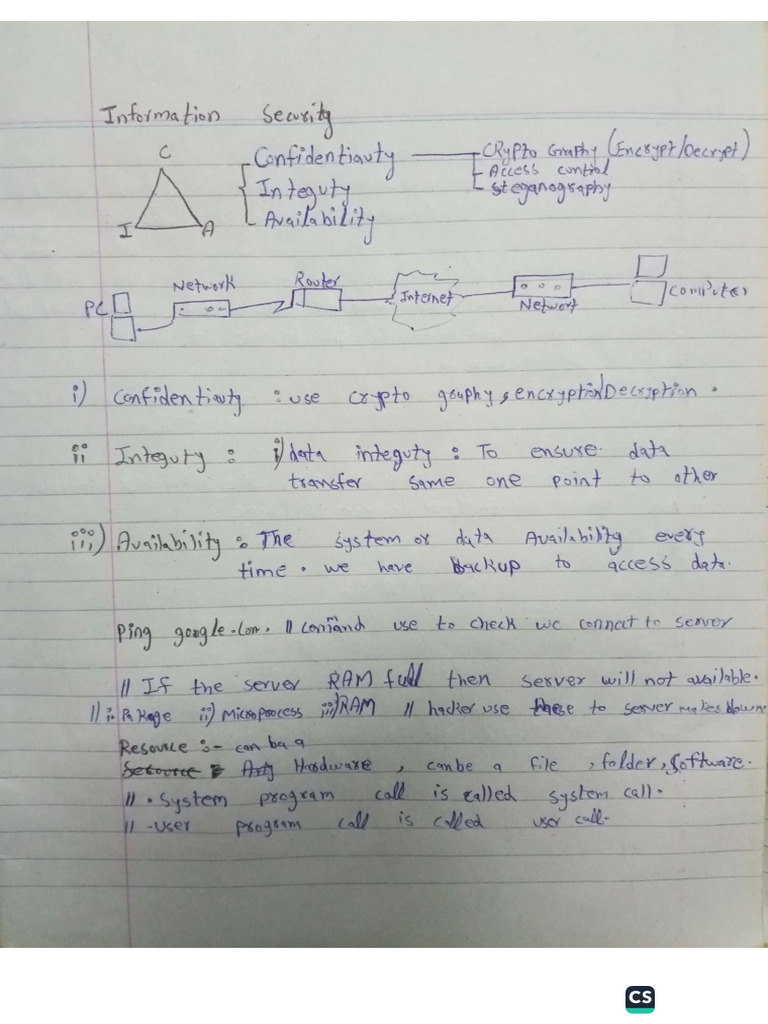 Information Security
C
I
A
Confidentiauty
Integuty
Availability
CRypto Graphy (Encrypt/Decrypt)
Access control
steganography
PC
Network
Router
Internet
Network
Computer
i) Confidentiauty : use crypto graphy, encryption/Decryption.
ii Integuty : i) data integuty : To ensure data
transfer same one point to other
iii) Availability : The system or data Availability every
time. we have backup to access data.
Ping google.com. // comand use to check we connect to server
// If the server RAM full then server will not available.
// i. ii) Microprocess iii) RAM // hacker use these to server makes down
Resource :- can be a
Hardware, can be a file, folder, software.
// . System program call is called system call.
// - User program call is called user call.
CS